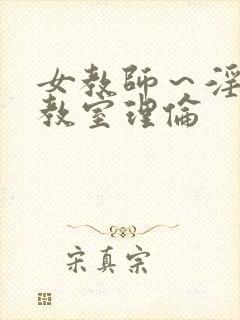 女教師～淫
教室理倫
宋真宗